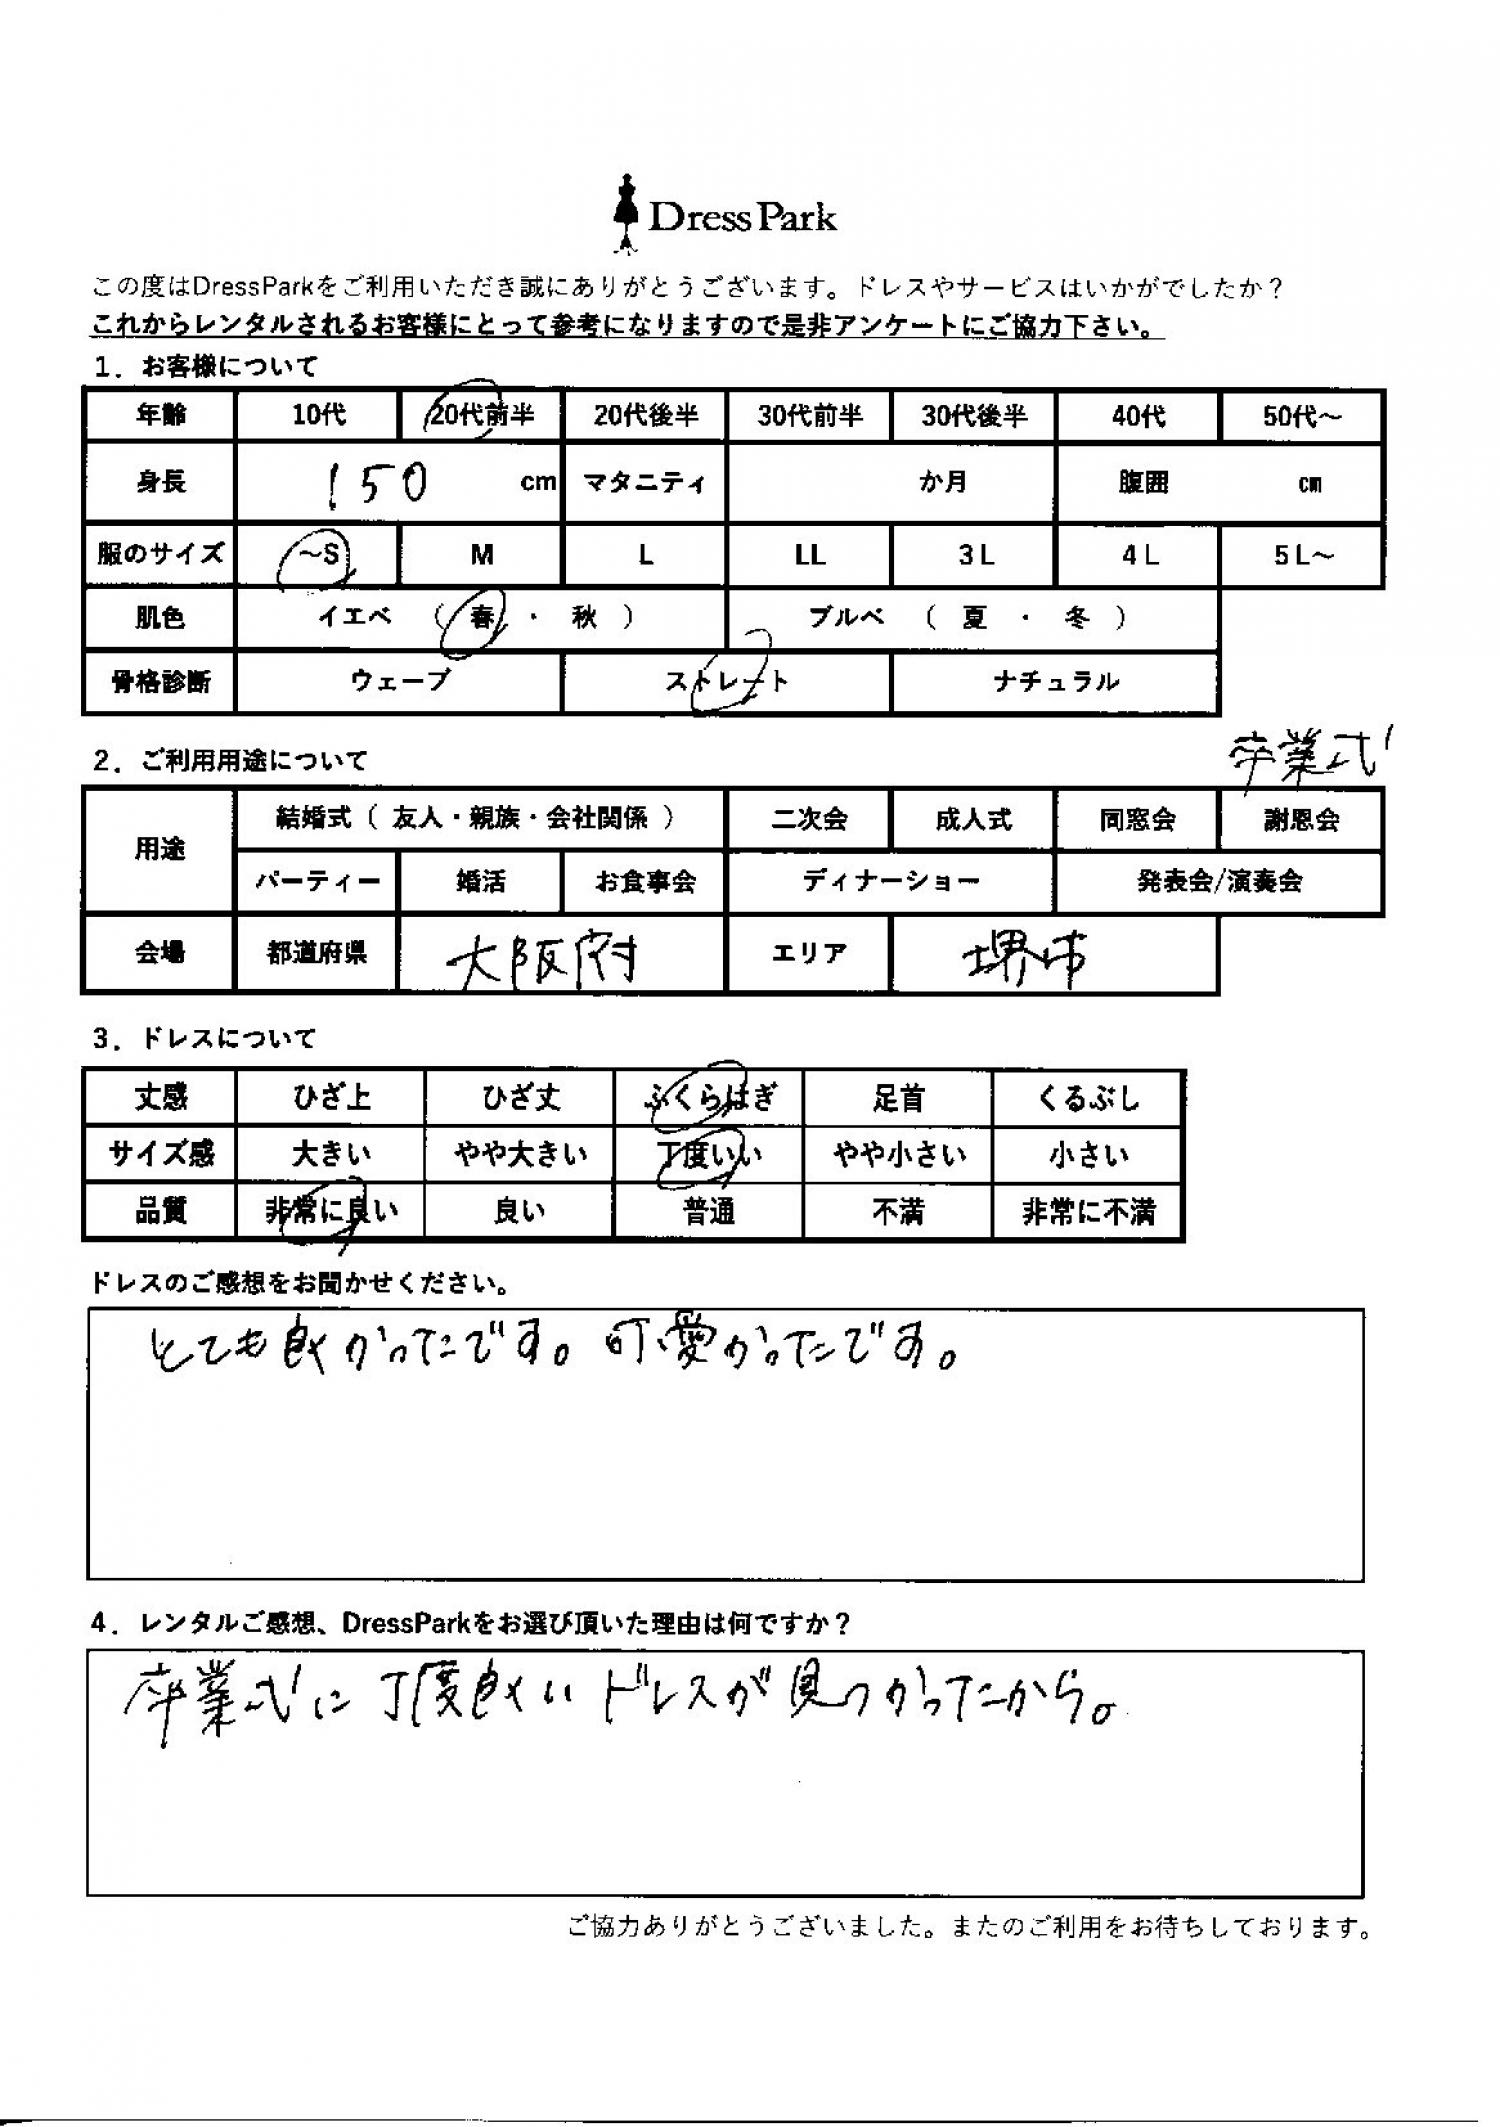 Dress Park
この度はDressParkをご利用いただき誠にありがとうございます。ドレスやサービスはいかがでしたか？
これからレンタルされるお客様にとって参考になりますので是非アンケートにご協力下さい。
1．お客様について
年齢 10代 20代前半 20代後半 30代前半 30代後半 40代 50代～
身長 150 cm マタニティ か月 腹囲 cm
服のサイズ ～S M L LL 3L 4L 5L～
肌色 イエベ （ 春 ・ 秋 ） ブルベ （ 夏 ・ 冬 ）
骨格診断 ウェーブ ストレート ナチュラル
2．ご利用用途について
卒業式
用途 結婚式（ 友人・親族・会社関係 ） 二次会 成人式 同窓会 謝恩会
パーティー 婚活 お食事会 ディナーショー 発表会/演奏会
会場 都道府県 大阪府 エリア 堺市
3．ドレスについて
丈感 ひざ上 ひざ丈 ふくらはぎ 足首 くるぶし
サイズ感 大きい やや大きい 丁度いい やや小さい 小さい
品質 非常に良い 良い 普通 不満 非常に不満
ドレスのご感想をお聞かせください。
とても良かったです。可愛かったです。
4．レンタルご感想、DressParkをお選び頂いた理由は何ですか？
卒業式に丁度良いドレスが見つかったから。
ご協力ありがとうございました。またのご利用をお待ちしております。